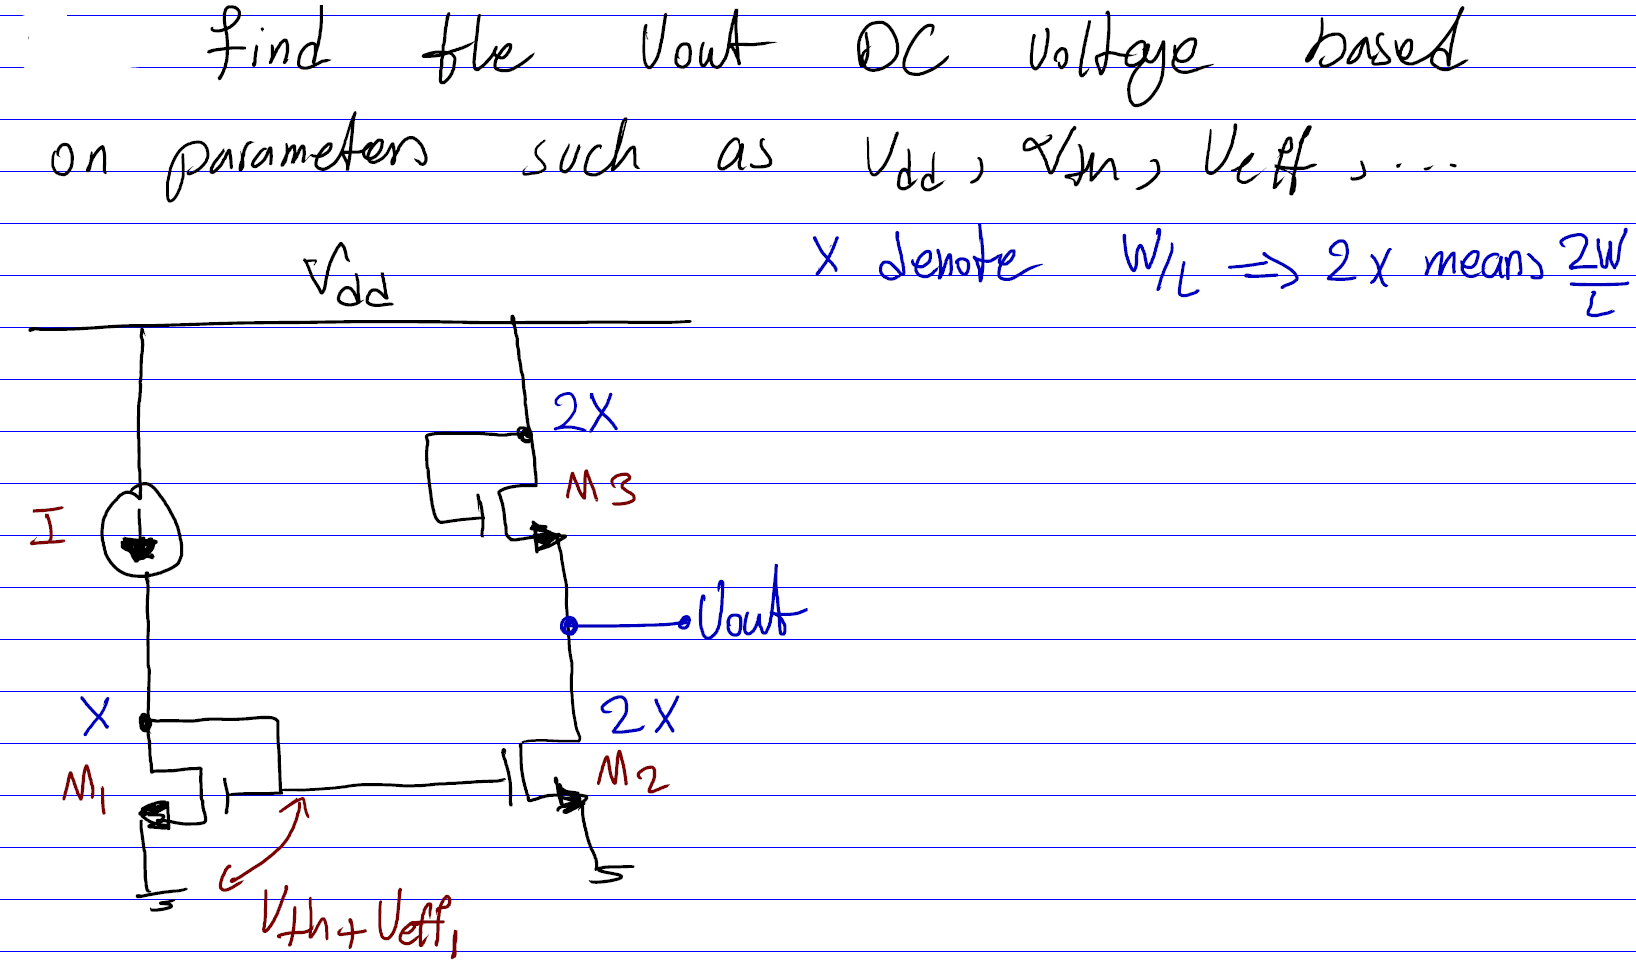 find the Vout DC Voltage based
on parameters such as Vdd, Vth, Veff, ...
X denote W/L => 2X means 2W/L
Vdd
2X
M3
I
Vout
X
2X
M1
M2
Vth + Veff1